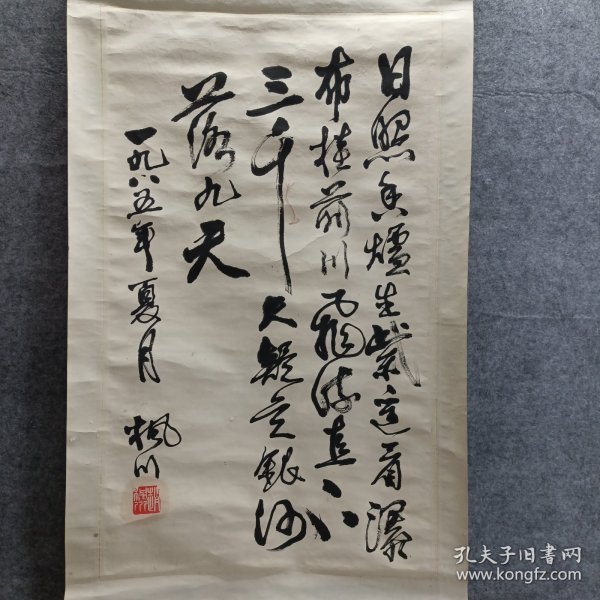 日照香爐生紫遥看瀑
布挂前川飛流直下
三千尺疑是銀河
落九天
一九八五年夏月 楓川
孔夫子旧书网
www.kongfz.com